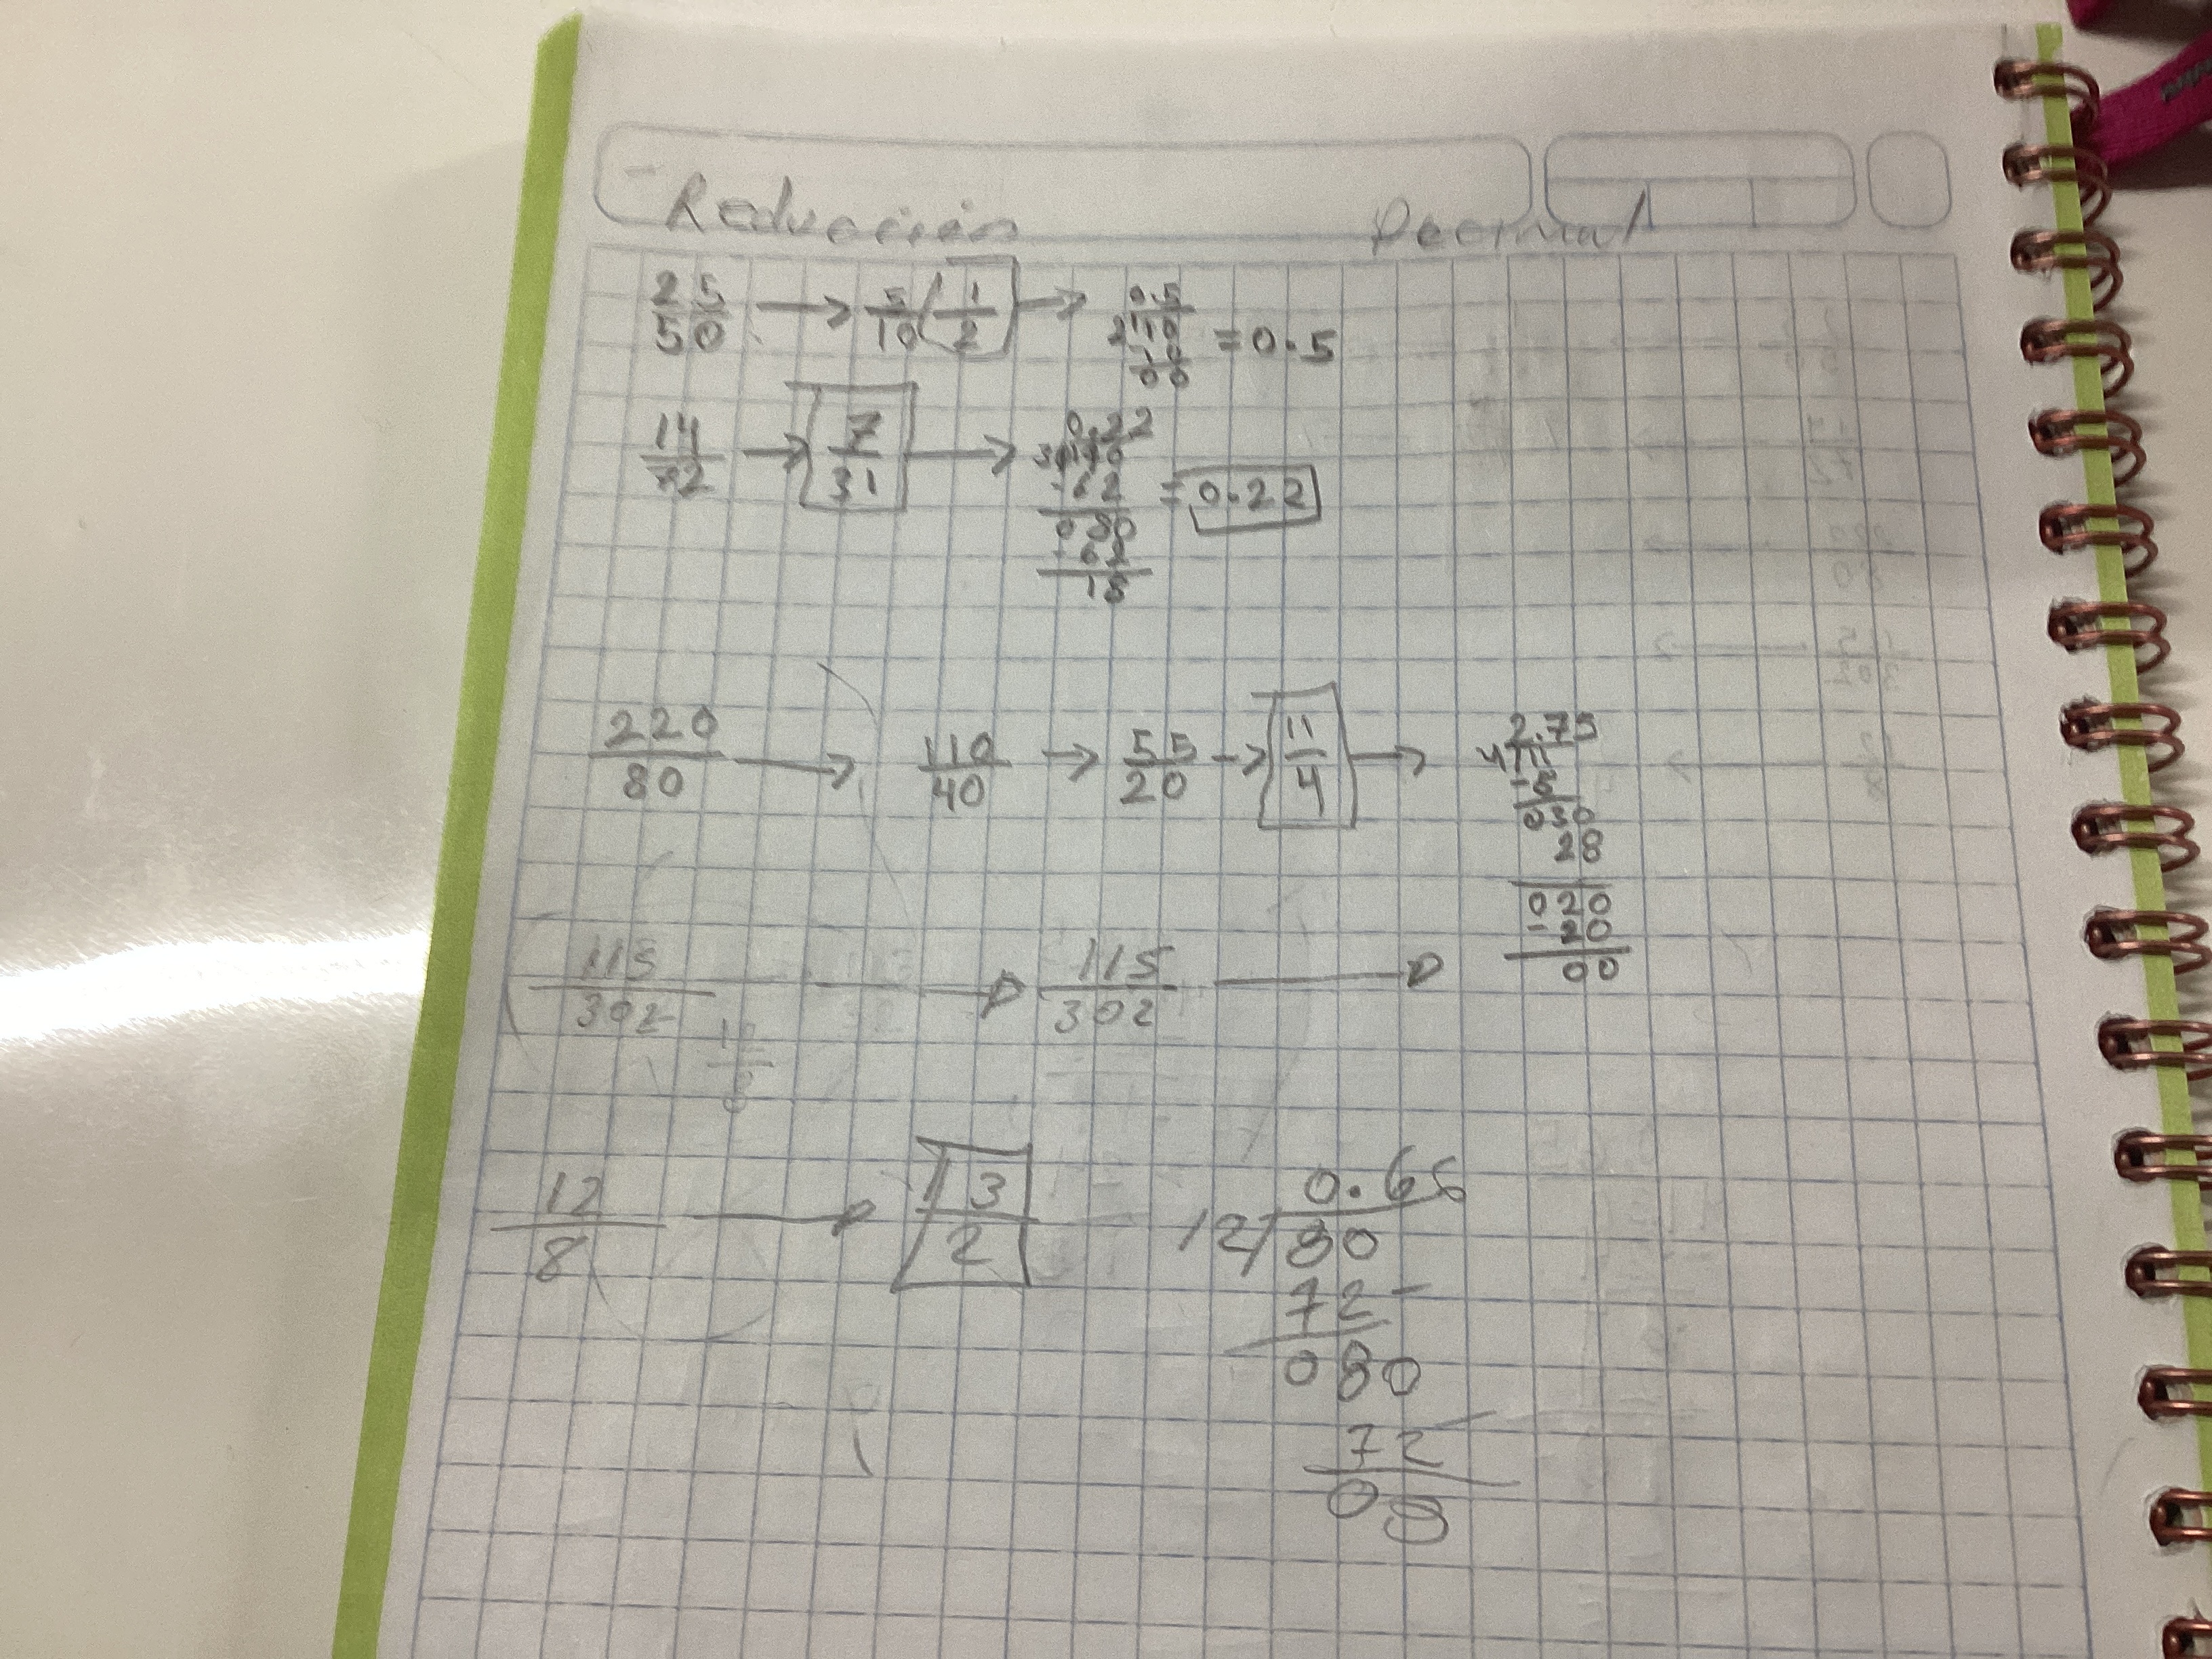 Reducción Decimal
25/50 → 5/10 1/2 → 2 10 0.5 = 0.5
10
00
14/72 → 7/31 → 0.22
-62 = 0.22
080
-62
18
220/80 → 110/40 → 55/20 → 11/4 → 2.75
4 11
-8
030
28
020
-20
00
115/302 → 115/302 →
12/8 → 3/2 0.66
12 80
72 -
080
72 -
08